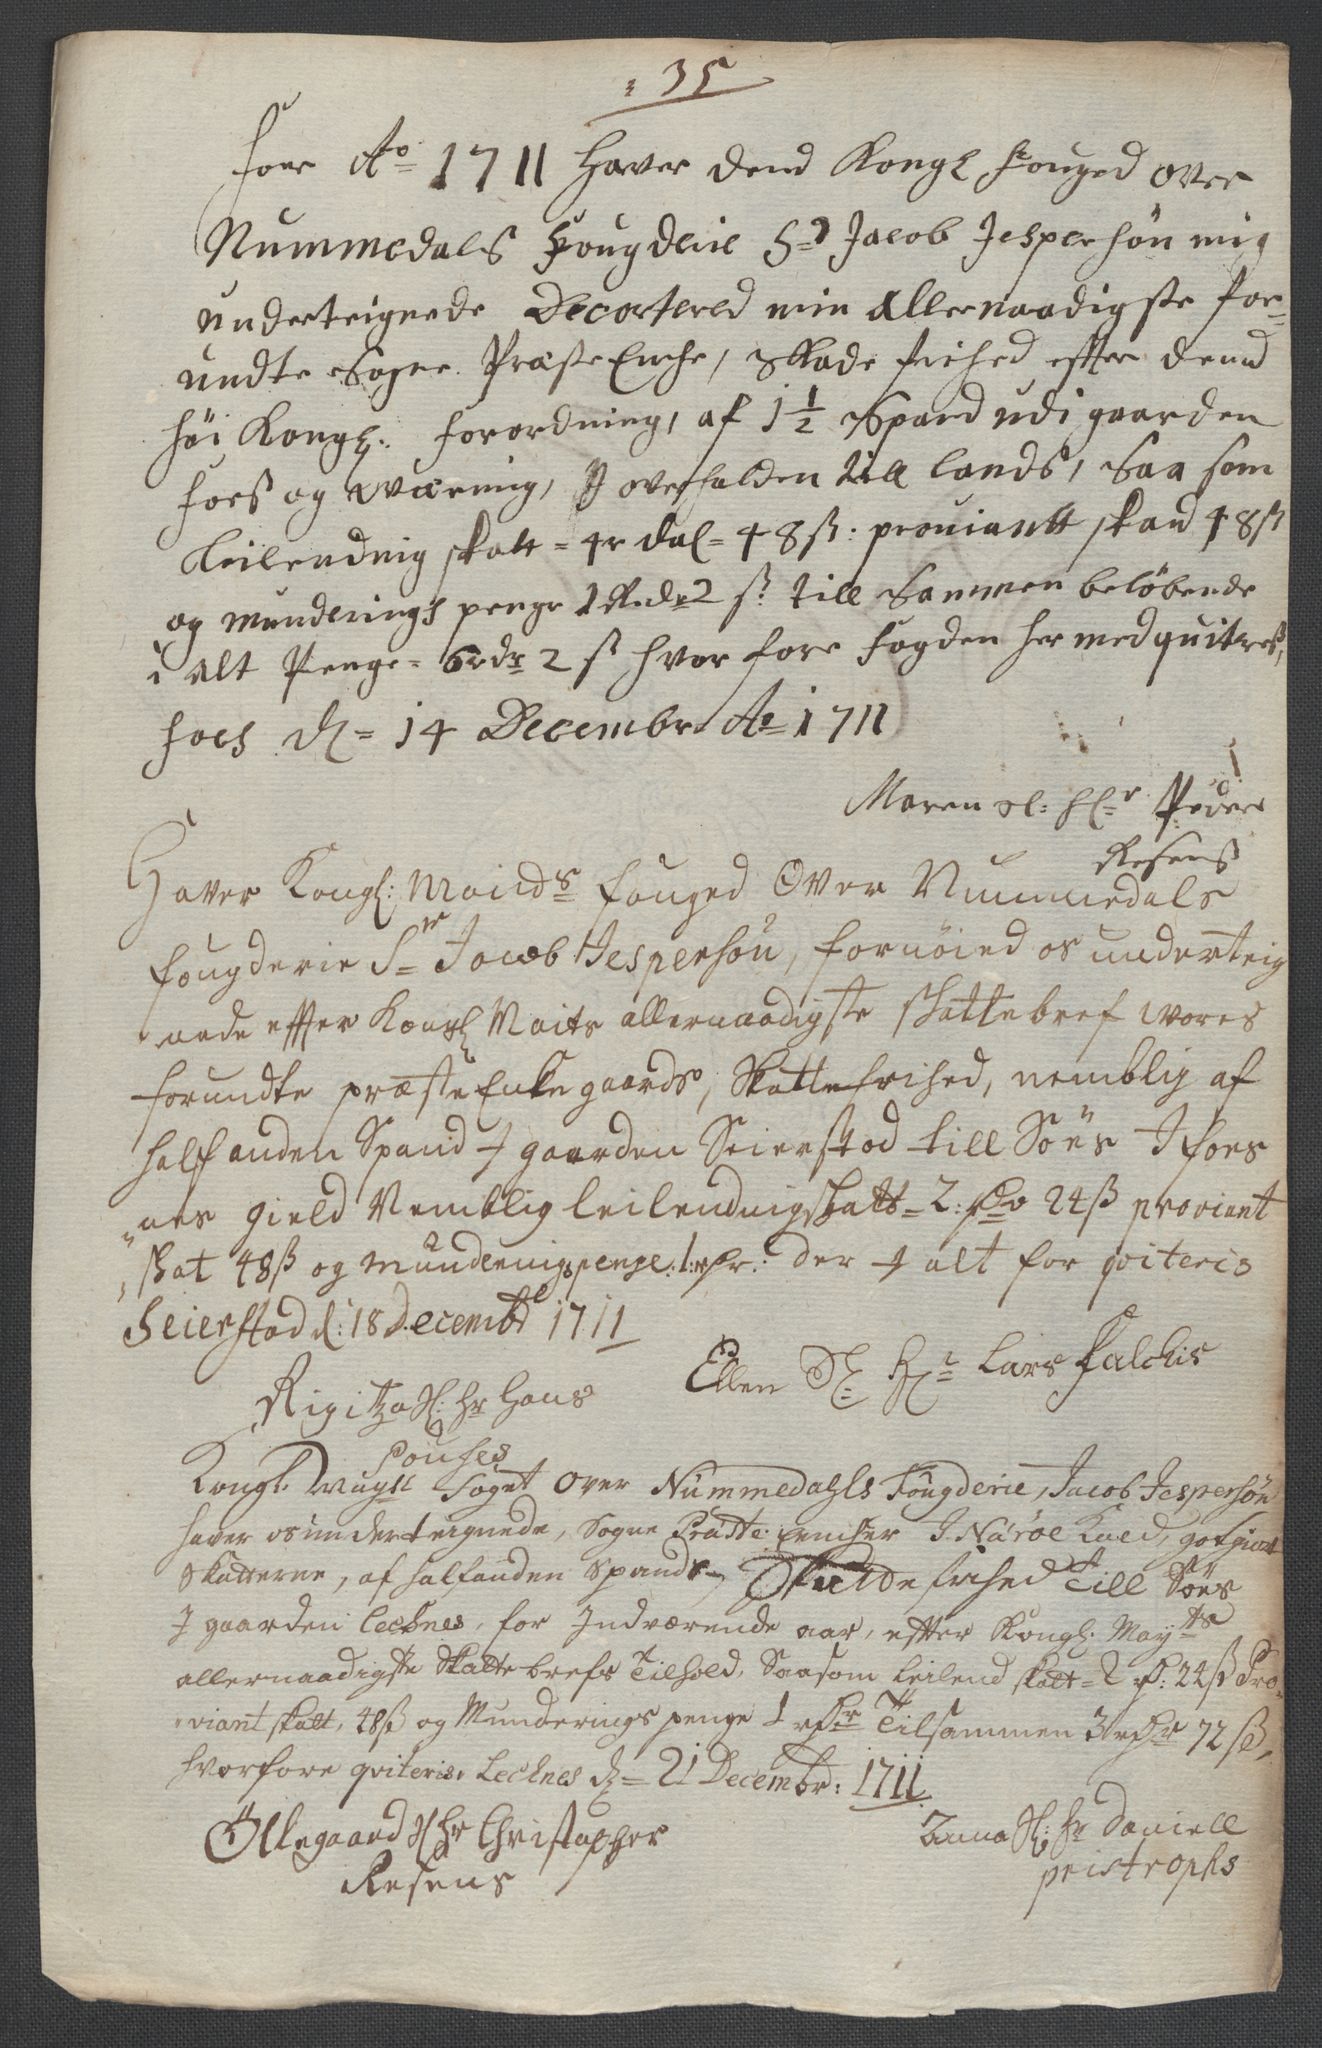 : 35
foer Ao 1711 hawer dend Kongl fouged over
Nummedals Fougderie Sr Jacob Jespersøn mig
underteignede Decortered min Allernaadigste for=
undte Sogne Præste Enche, Skade frihed efter dend
høi Kongl: forordning, af 1½ Spand udi gaarden
foss og Wærning, J overhalden till lands, Saa som
Leilendnig skatt = 4r dal= 48 ß: proviantt skad 48 ß
og munderings penge 1 Rdr 2 ß till Sammen beløbende
i alt Penge= 6rdr 2 ß hvor fore fogden her med quiteres,
foss d= 14 Decembr Ao 1711
Maren sl: Hr Peder
Resens
Haver Kongl: Maids fouged Over Nummedals
fougderie Sr Jacob Jespersøn, fornøied os underteig
nede effter Kongl Maits allernaadigste skattebref wores
forundte præste Enke gaards, Skatte frihed, nemblig af
half anden Spand J gaarden Seierstad till Søes J fos
nes gield Nemblig leilendnigskatt = 2: rdr 24 ß proviant
skat 48 ß og munderingspenge :1: rdr: der J alt for qviteris
Seierstad d: 18 Decembr 1711
Ellen Sl: Hr Lars Falchis
Rigitza Sl: Hr Hans
Pouses
Kongl. Mayst foget over Nummedahls Fougderie, Jacob Jespersøn
haver os underteignede, Sogne Præste Encher J Nærøe Kald, gotgiort
Skatterne, af halfanden Spands Skatte frihed Till Søes
J gaarden Lechnes, for Indværende aar, effter Kongl. Mayts
allernaadigste Skatte brefs Tilhold, Saasom Leilend skatt= 2 rd: 24 ß Pro
viant skatt, 48 ß og Munderings penge 1 rdr Tilsammen 3 rdr 72 ß,
hvorfore qviteris. Lechnes d= 21 Decembr: 1711
Ollegaard Sl Hr Christopher
Resens
Anna Sl: Hr Daniell
peistrophs